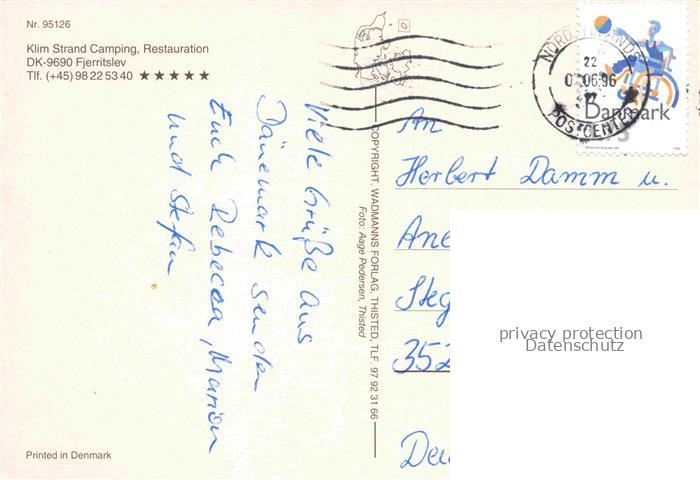 Nr. 95126
Klim Strand Camping, Restauration
DK-9690 Fjerritslev
Tlf. (+45) 98 22 53 40 ★★★★★
Viele Grüße aus
Dänemark senden
Euch Rebecca, Marion
und Stefan
Printed in Denmark
COPYRIGHT. WADMANNS FORLAG, THISTED, TLF. 97 92 31 66
Foto: Aage Pedersen, Thisted
22
06.96
POSTCENTER
Danmark
An
Herbert Damm u.
Ane
Steg
352
Deu
privacy protection
Datenschutz